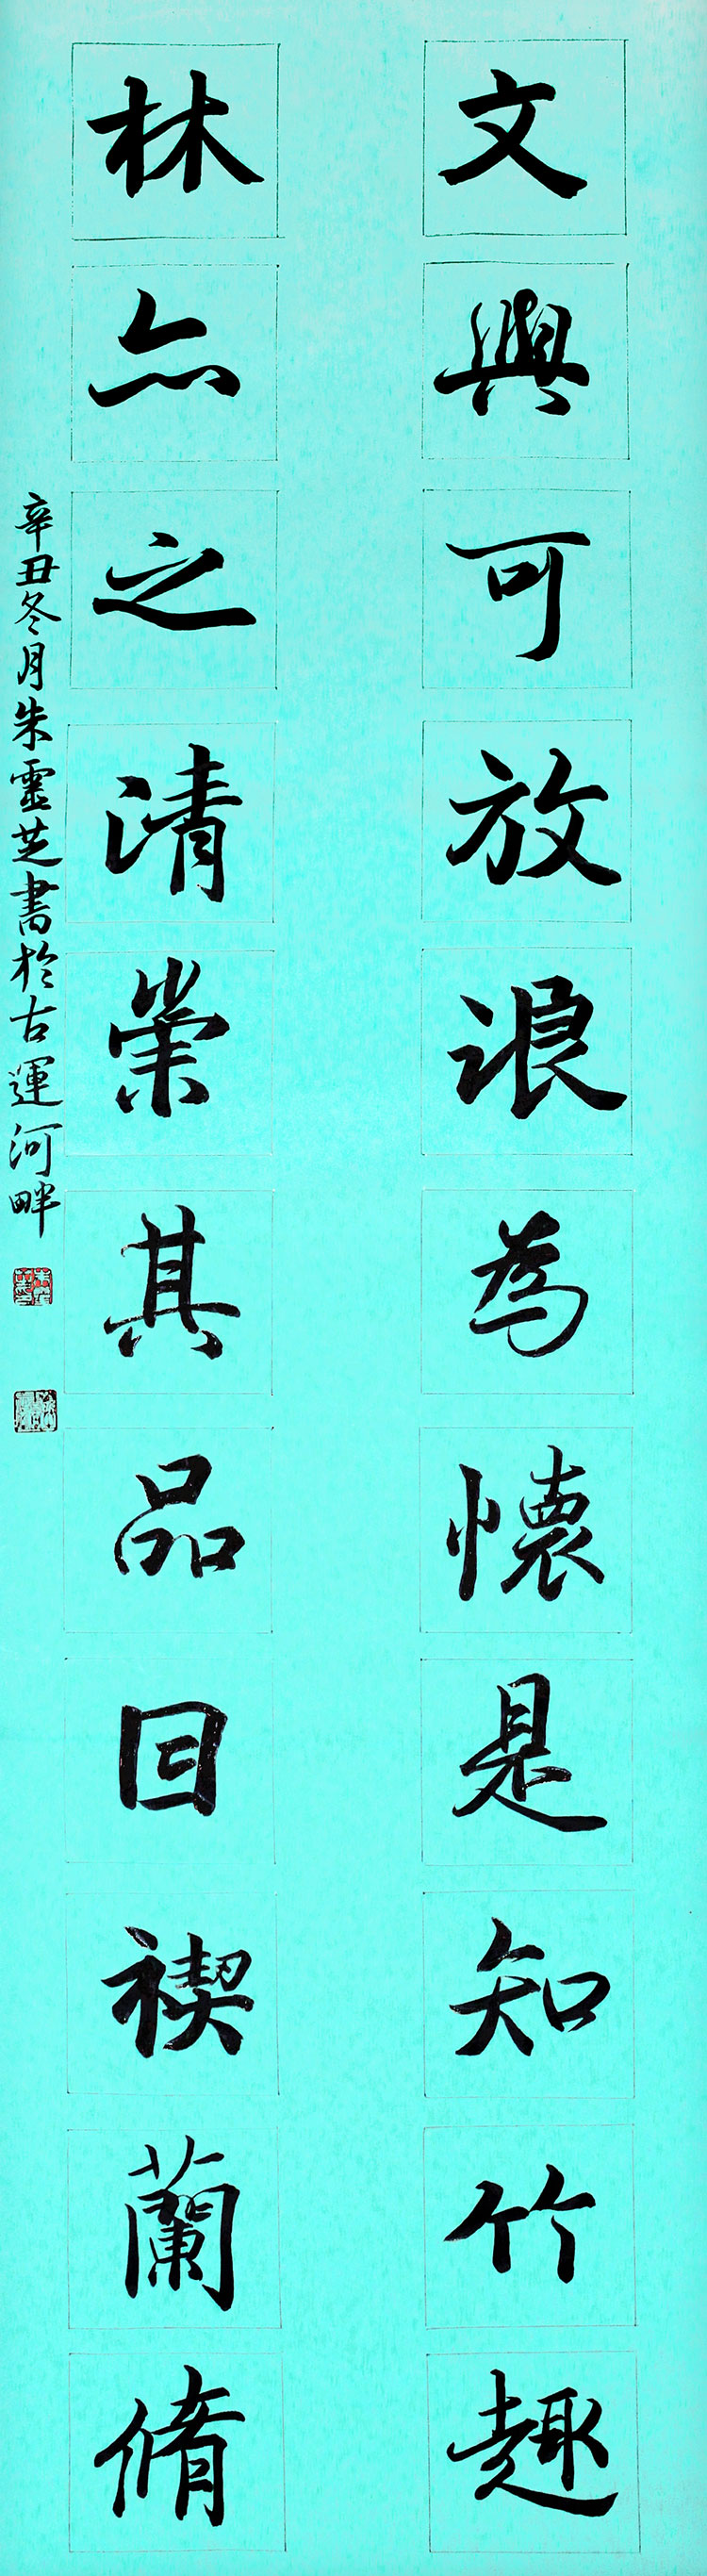 文與可放浪為懷是知竹趣
林亦之清崇其品因禊蘭脩
辛丑冬月朱靈芝書於古運河畔